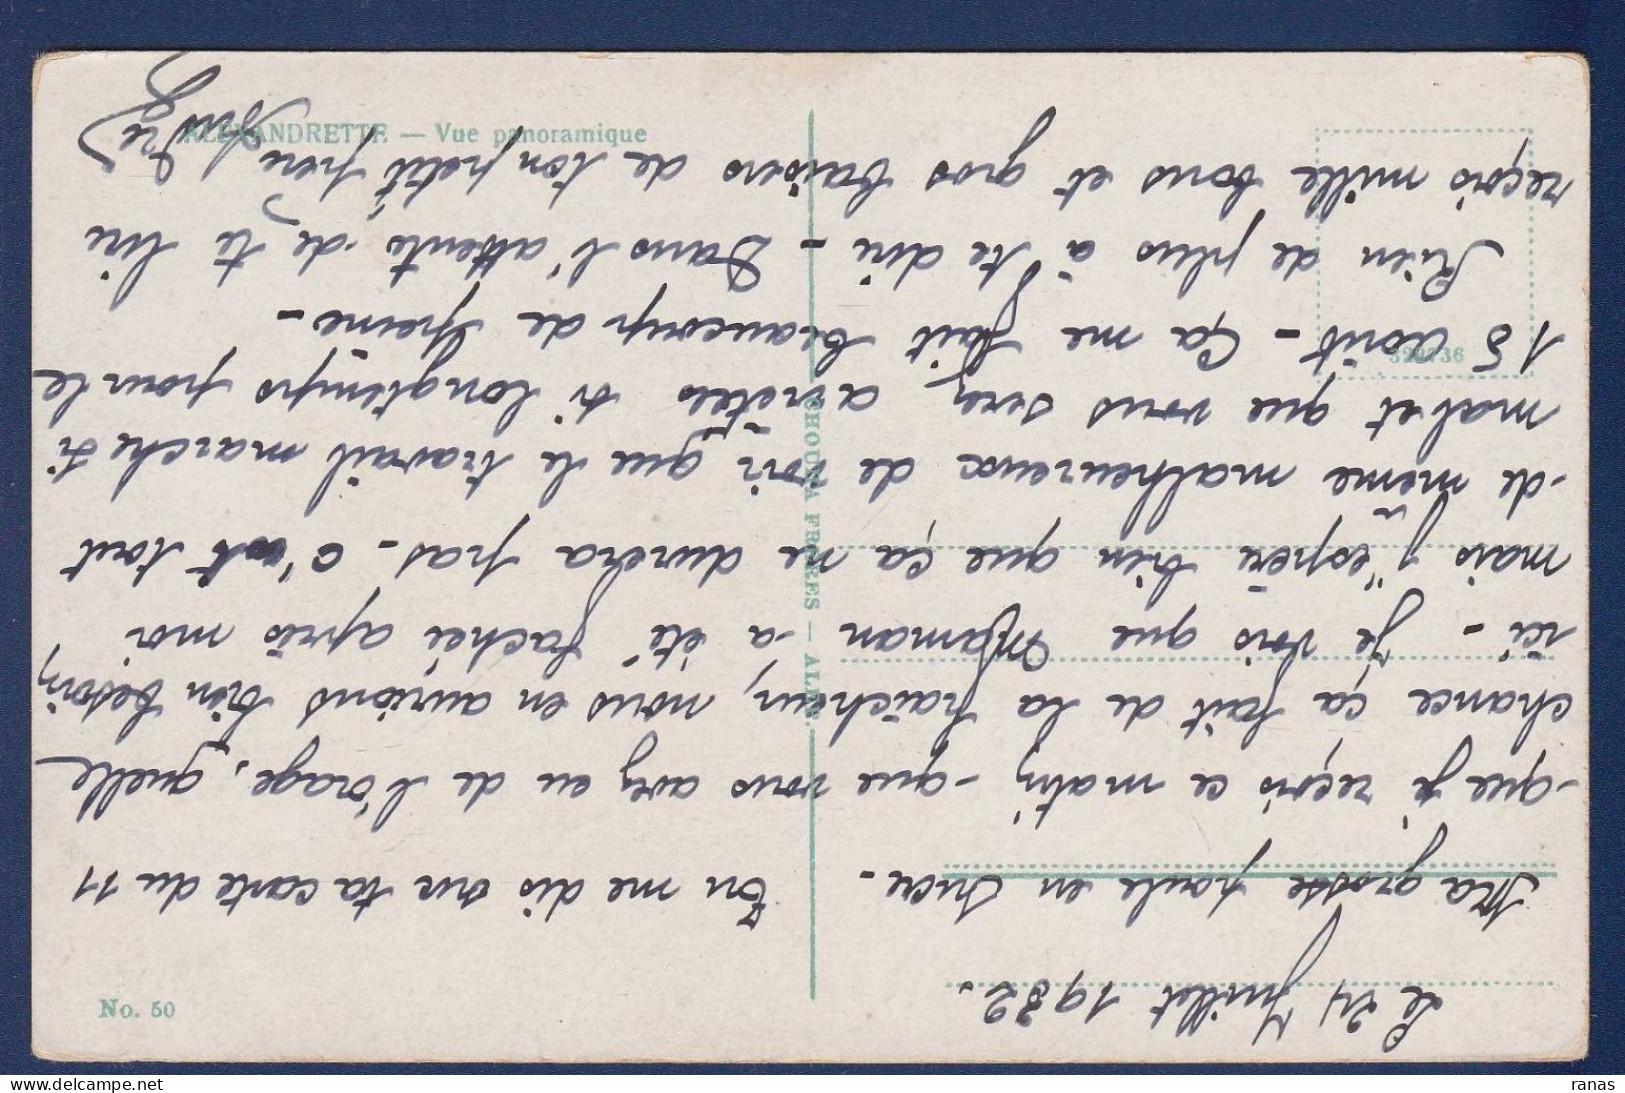 ALEXANDRETTE — Vue panoramique
No. 50
CHOUHA FRERES — ALEP.
329736
Le 24 Juillet 1932.
Ma grosse poule en sucre -
Tu me dis sur ta carte du 11
que je reçois ce matin, que vous avez eu de l'orage, quelle
chance ça fait de la fraîcheur, nous en aurions bien besoin,
ici - Je vois que Maman a été fachée après moi
mais j'espère bien que ça ne durera pas - C'est tout
de même malheureux de voir que le travail marche si
mal et que vous serez arrêtés si longtemps pour le
15 Août - Ça me fait beaucoup de peine -
Rien de plus à te dire - Dans l'attente de te lire
reçois mille bons et gros baisers de ton petit frère
André
ranas